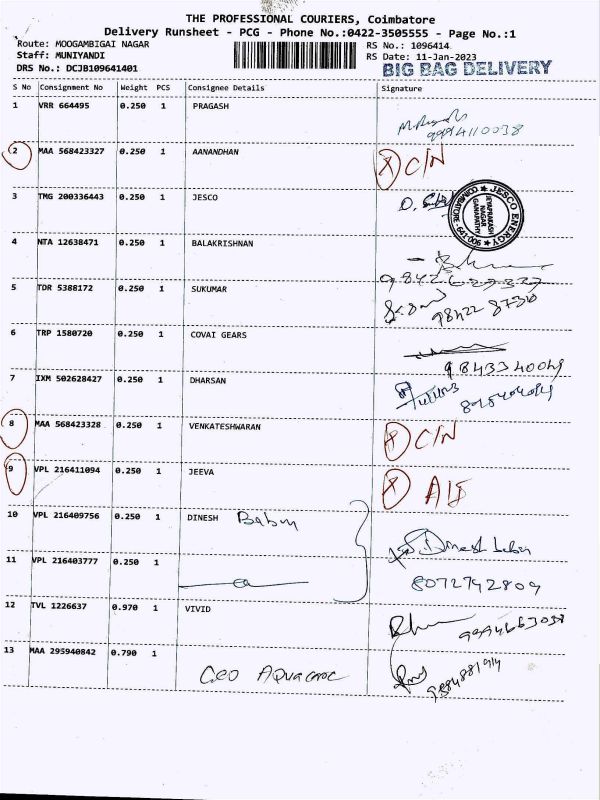 THE PROFESSIONAL COURIERS, Coimbatore
Delivery Runsheet - PCG - Phone No.:0422-3505555 - Page No.:1
Route: MOOGAMBIGAI NAGAR RS No.: 1096414
Staff: MUNIYANDI RS Date: 11-Jan-2023
DRS No.: DCJB109641401 BIG BAG DELIVERY
S No Consignment No Weight PCS Consignee Details Signature
1 VRR 664495 0.250 1 PRAGASH
9994110038
2 MAA 568423327 0.250 1 AANANDHAN X C/N
3 TMG 200336443 0.250 1 JESCO
JESCO ENERGY
JEYAPRAKASH
NAGAR
GANAPATHY
COIMBATORE-641 006
4 NTA 12638471 0.250 1 BALAKRISHNAN
5 TDR 5388172 0.250 1 SUKUMAR
98422 87310
6 TRP 1580720 0.250 1 COVAI GEARS
9843340049
7 IXM 502628427 0.250 1 DHARSAN
8 MAA 568423328 0.250 1 VENKATESHWARAN X C/N
9 VPL 216411094 0.250 1 JEEVA X
10 VPL 216409756 0.250 1 DINESH Babu
Dinesh babu
11 VPL 216403777 0.250 1
8072742809
12 TVL 1226637 0.970 1 VIVID
9994663038
13 MAA 295940842 0.790 1
CEO Aquacare